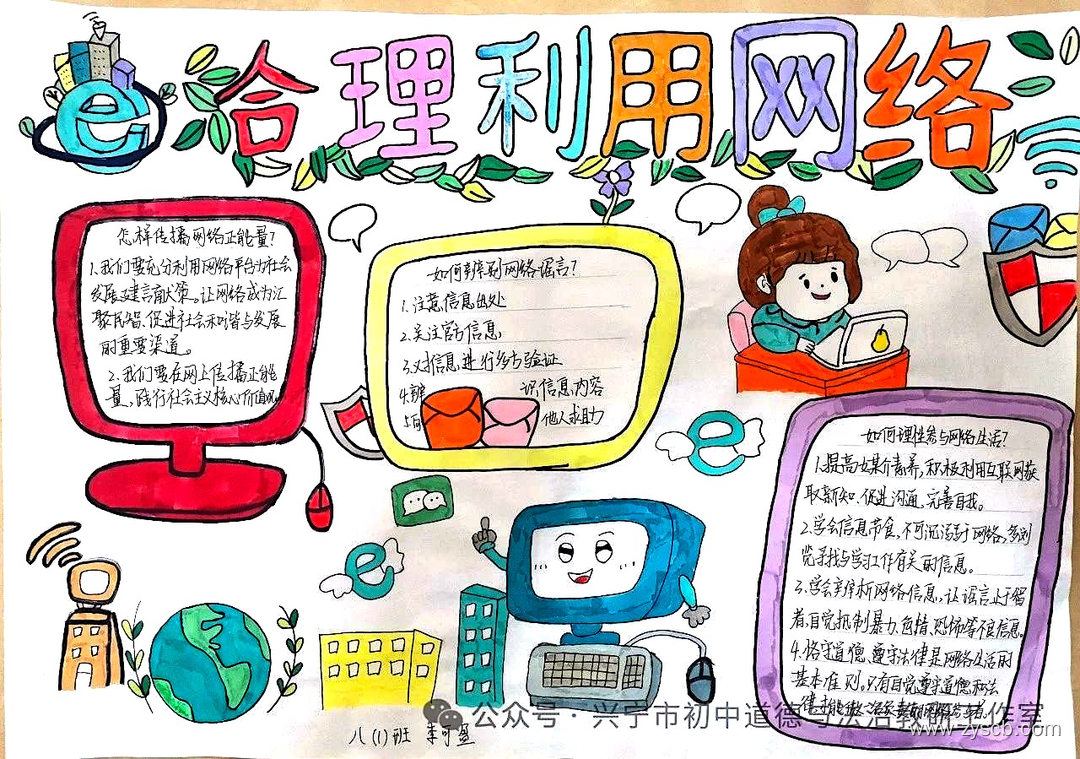 合理利用网络
怎样传播网络正能量?
1.我们要充分利用网络平台为社会
发展建言献策。让网络成为汇
聚民智、促进社会和谐与发展
的重要渠道。
2.我们要在网上传播正能
量,践行社会主义核心价值观。
如何辨别网络谣言?
1.注意信息出处
2.关注官方信息
3.对信息进行多方验证
4.辨 识信息内容
5.向 他人求助
如何理性参与网络生活?
1.提高媒介素养,积极利用互联网获
取新知、促进沟通、完善自我。
2.学会信息节食,不可沉湎于网络,多浏
览寻找与学习工作有关的信息。
3.学会辨析网络信息,让谣言止于智
者,自觉抵制暴力、色情、恐怖等不良信息。
4.恪守道德、遵守法律是网络生活的
基本准则。只有自觉遵守道德和法
律才能做
八(1)班 李可盈
公众号·兴宁市初中道德与法治教研工作室
www.zyscb.com